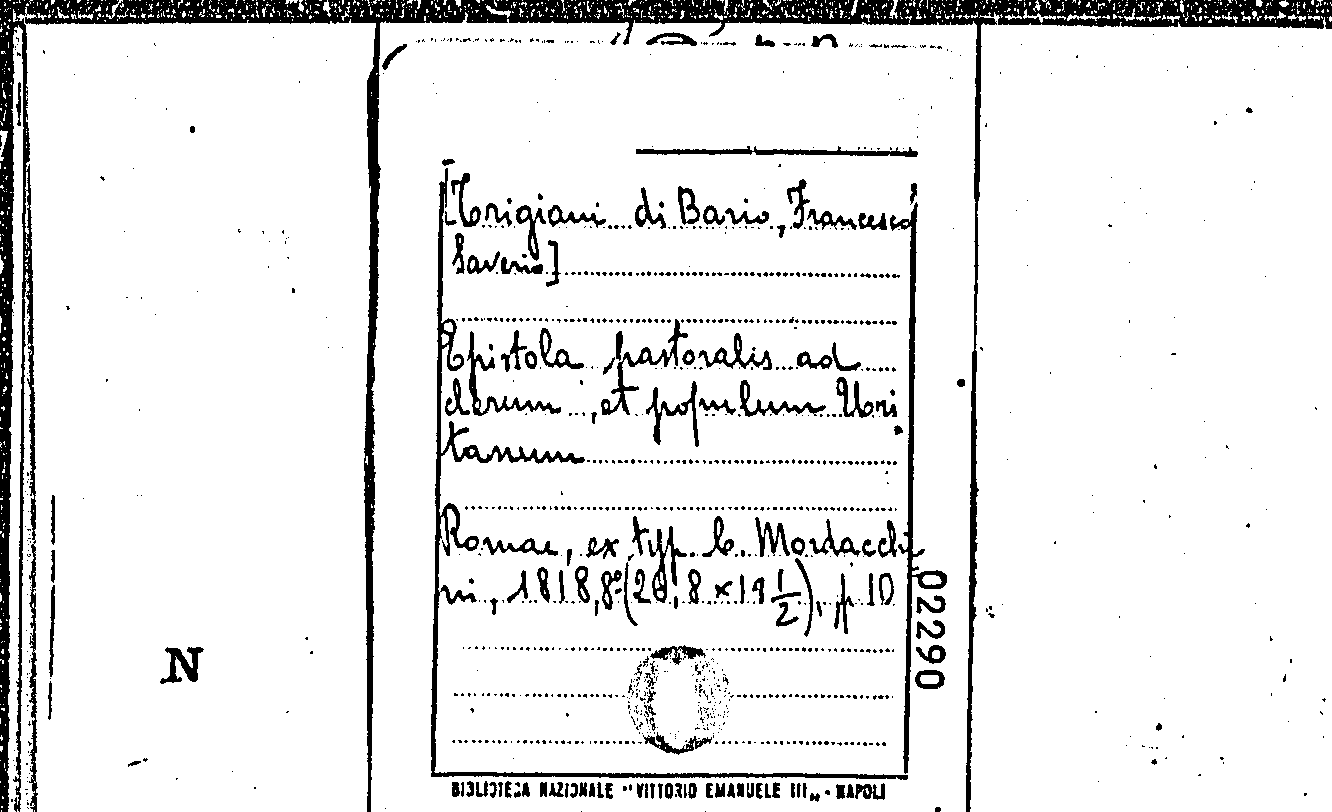 [Trigiani di Bario, Francesco
Saverio]
Epistola pastoralis ad
clerum, et populum Uri
tanum
Romae, ex typ. C. Mordacchi
ni, 1818, 8° (20,8 x 14 1/2), p 10
02290
N
BIBLIOTECA NAZIONALE "VITTORIO EMANUELE III" - NAPOLI